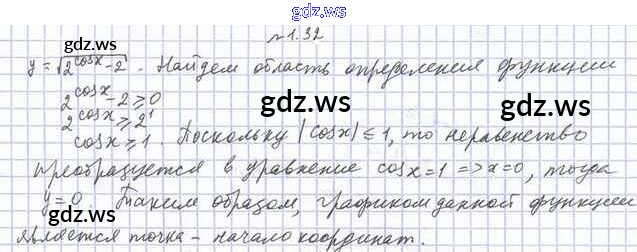 gdz.ws
№1.32
y=√(2^cosx-2). Найдем область определения функции
gdz.ws
2^cosx-2⩾0
gdz.ws
2^cosx⩾2^1
cosx⩾1. Поскольку |cosx|⩽1, то неравенство
gdz.ws gdz.ws
преобразуется в уравнение cosx=1=>x=0, тогда
y=0. Таким образом, графиком данной функции
gdz.ws gdz.ws
является точка - начало координат.